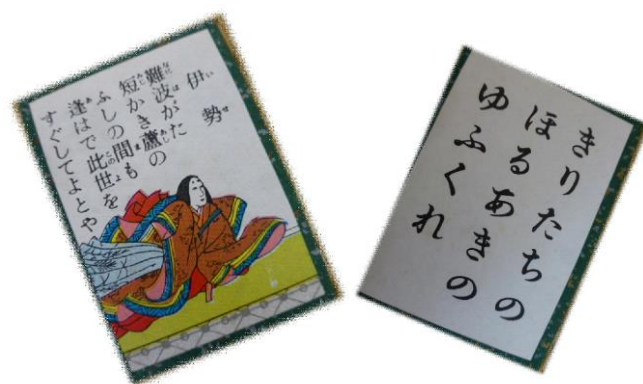 伊勢
難波がた
短かき蘆の
ふしの間も
逢はで此世を
すぐしてよとや
きりたちの
ほるあきの
ゆふくれ